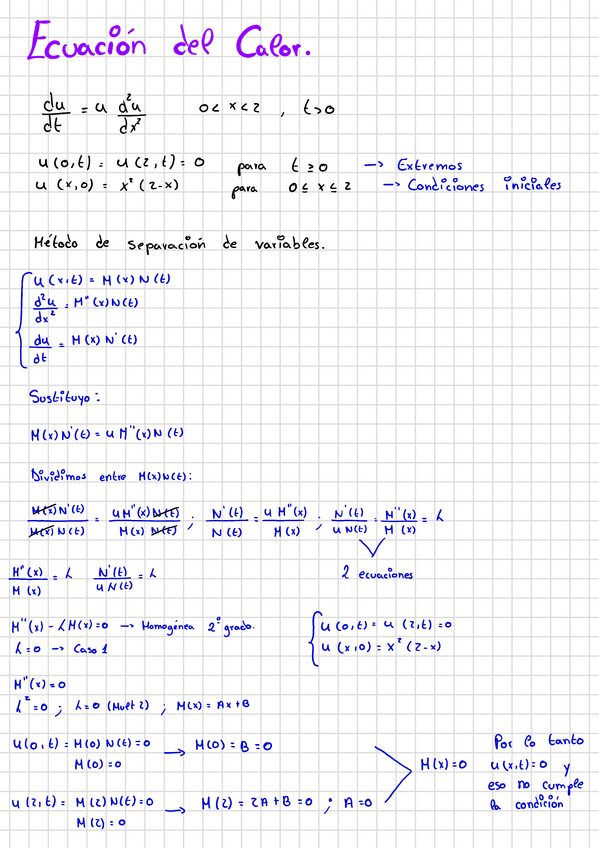 Ecuación del Calor.
du/dt = 4 d²u/dx² 0 < x < 2 , t > 0
u(0,t) = u(2,t) = 0 para t ≥ 0 → Extremos
u(x,0) = x²(2-x) para 0 ≤ x ≤ 2 → Condiciones iniciales
Método de separación de variables.
u(x,t) = M(x)N(t)
d²u/dx² = M''(x)N(t)
du/dt = M(x)N'(t)
Sustituyo:
M(x)N'(t) = 4M''(x)N(t)
Dividimos entre M(x)N(t):
M(x)N'(t)/M(x)N(t) = 4M''(x)N(t)/M(x)N(t) ; N'(t)/N(t) = 4M''(x)/M(x) ; N'(t)/4N(t) = M''(x)/M(x) = λ
M''(x)/M(x) = λ N'(t)/4N(t) = λ 2 ecuaciones
M''(x) - λM(x) = 0 → Homogénea 2º grado. u(0,t) = u(2,t) = 0
λ = 0 → Caso 1 u(x,0) = x²(2-x)
M''(x) = 0
λ² = 0 ; λ = 0 (Mult 2) ; M(x) = Ax + B
u(0,t) = M(0)N(t) = 0 → M(0) = B = 0
M(0) = 0
u(2,t) = M(2)N(t) = 0 → M(2) = 2A + B = 0 ; A = 0
M(2) = 0
M(x) = 0
Por lo tanto
u(x,t) = 0 y
eso no cumple
la condición